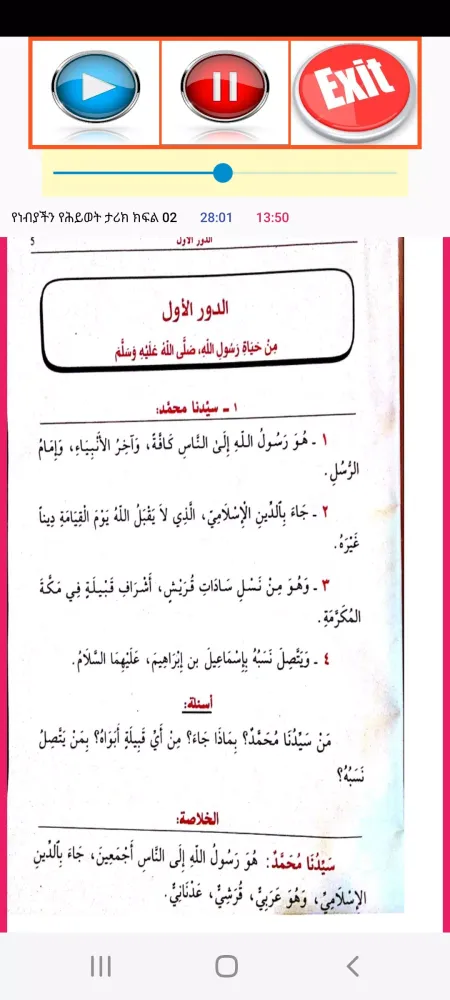 Exit
የነብያችን የሕይወት ታሪክ ክፍል 02 28:01 13:50
الدور الأول 5
الدور الأول
مِنْ حَيَاةِ رَسُولِ اللهِ، صَلَّى اللهُ عَلَيْهِ وَسَلَّمَ
١ - سيّدنا محمّد:
١ - هُوَ رَسُولُ اللهِ إِلَىٰ النَّاسِ كَافَّةً، وَآخِرُ الأَنْبِيَاءِ، وَإِمَامُ
الرُّسُلِ.
٢ - جَاءَ بِالدِّينِ الْإِسْلَامِيِّ، الَّذِي لاَ يَقْبَلُ اللهُ يَوْمَ القِيَامَةِ دِيناً
غَيْرَهُ.
٣ - وَهُوَ مِنْ نَسْلِ سَادَاتِ قُرَيْشٍ، أَشْرَافِ قَبِيلَةٍ فِي مَكَّةَ
المُكَرَّمَةِ.
٤ - وَيَتَّصِلُ نَسَبُهُ بِإِسْمَاعِيلَ بن إِبْرَاهِيمَ، عَلَيْهِمَا السَّلَامُ.
أسئلة:
مَنْ سَيِّدُنَا مُحَمَّدٌ؟ بِمَاذَا جَاءَ؟ مِنْ أَيِّ قَبِيلَةٍ أَبَوَاهُ؟ بِمَنْ يَتَّصِلُ
نَسَبُهُ؟
الخلاصة:
سَيِّدُنَا مُحَمَّدٌ: هُوَ رَسُولُ اللهِ إِلَى النَّاسِ أَجْمَعِينَ، جَاءَ بِالدِّينِ
الإِسْلَامِيِّ، وَهُوَ عَرَبِيٌّ، قُرَشِيٌّ، عَدْنَانِيٌّ.